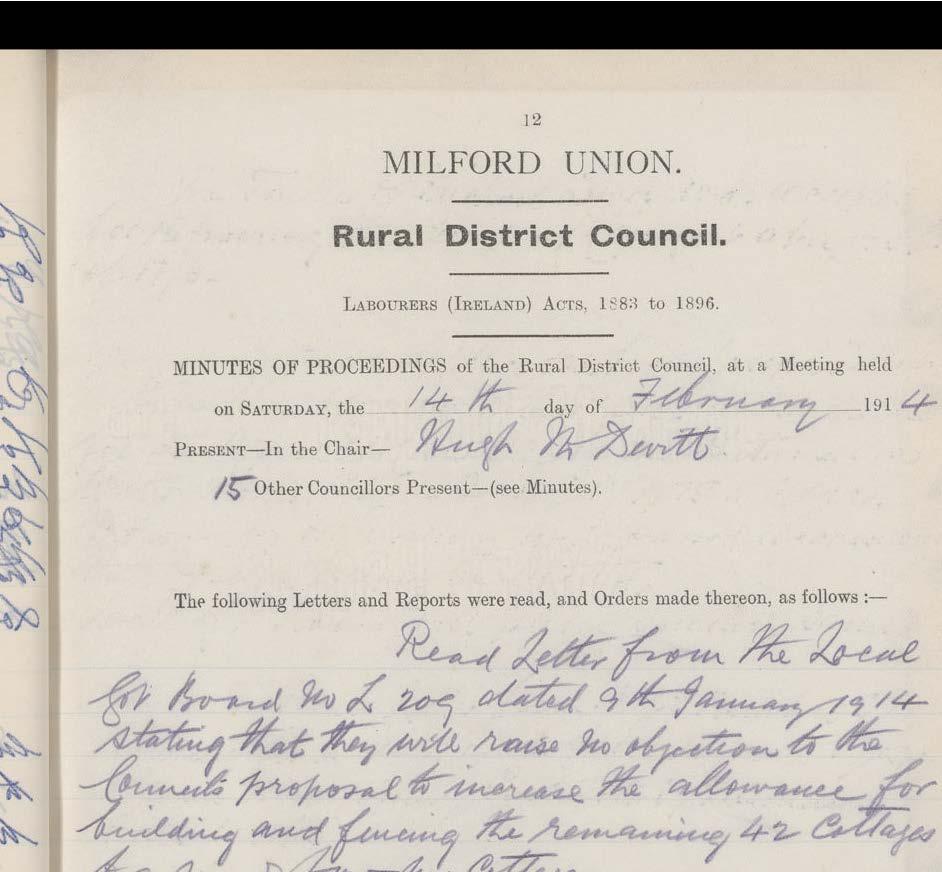 12
MILFORD UNION.
Rural District Council.
LABOURERS (IRELAND) ACTS, 1883 to 1896.
MINUTES OF PROCEEDINGS of the Rural District Council, at a Meeting held
on SATURDAY, the 14th day of February 1914
PRESENT—In the Chair— Hugh McDevitt
15 Other Councillors Present—(see Minutes).
The following Letters and Reports were read, and Orders made thereon, as follows :—
Read Letter from the Local
Gov Board No L 209 dated 9th January 1914
stating that they will raise no objection to the
Council's proposal to increase the allowance for
building and fencing the remaining 42 Cottages